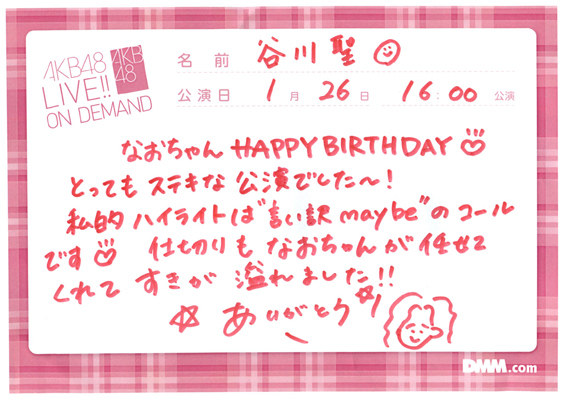 AKB48
LIVE!!
ON DEMAND
AKB
48
名前 谷川聖
公演日 1月26日 16:00公演
なおちゃん HAPPY BIRTHDAY
とっても ステキな 公演でした〜!
私的 ハイライトは"言い訳maybe"のコール
です 仕切りも なおちゃんが 任せて
くれて すきが 溢れました!!
☆ ありがとう☆
DMM.com